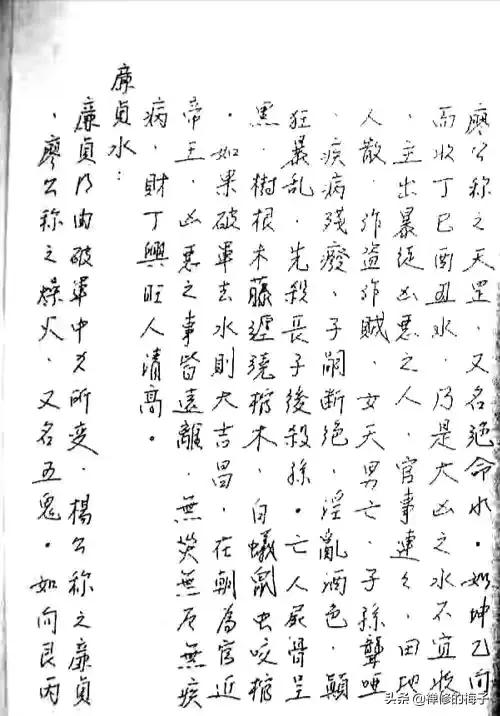 廖公称之天罡，又名绝命水。如坤乙向
而收丁巳酉丑水，乃是大凶之水不宜收
，主出暴徒凶恶之人，官事連々，田地
人散，作盗作賊，女夭男亡，子孫聾哑
，疾病殘廢，子嗣断绝，淫亂酒色，顛
狂暴乱，先殺長子後殺孫。亡人屍骨呈
黑，樹根木藤遲绕棺木，白蟻鼠虫咬棺
。如果破軍去水則大吉昌，在朝為官近
帝王，凶恶之事皆遠離，無災無厄無疾
病，財丁興旺人清高。
廉貞水：
廉貞乃由破軍中爻所变，楊公称之廉貞
，廖公称之燥火，又名五鬼。如向艮丙
头条 @禅修的梅子